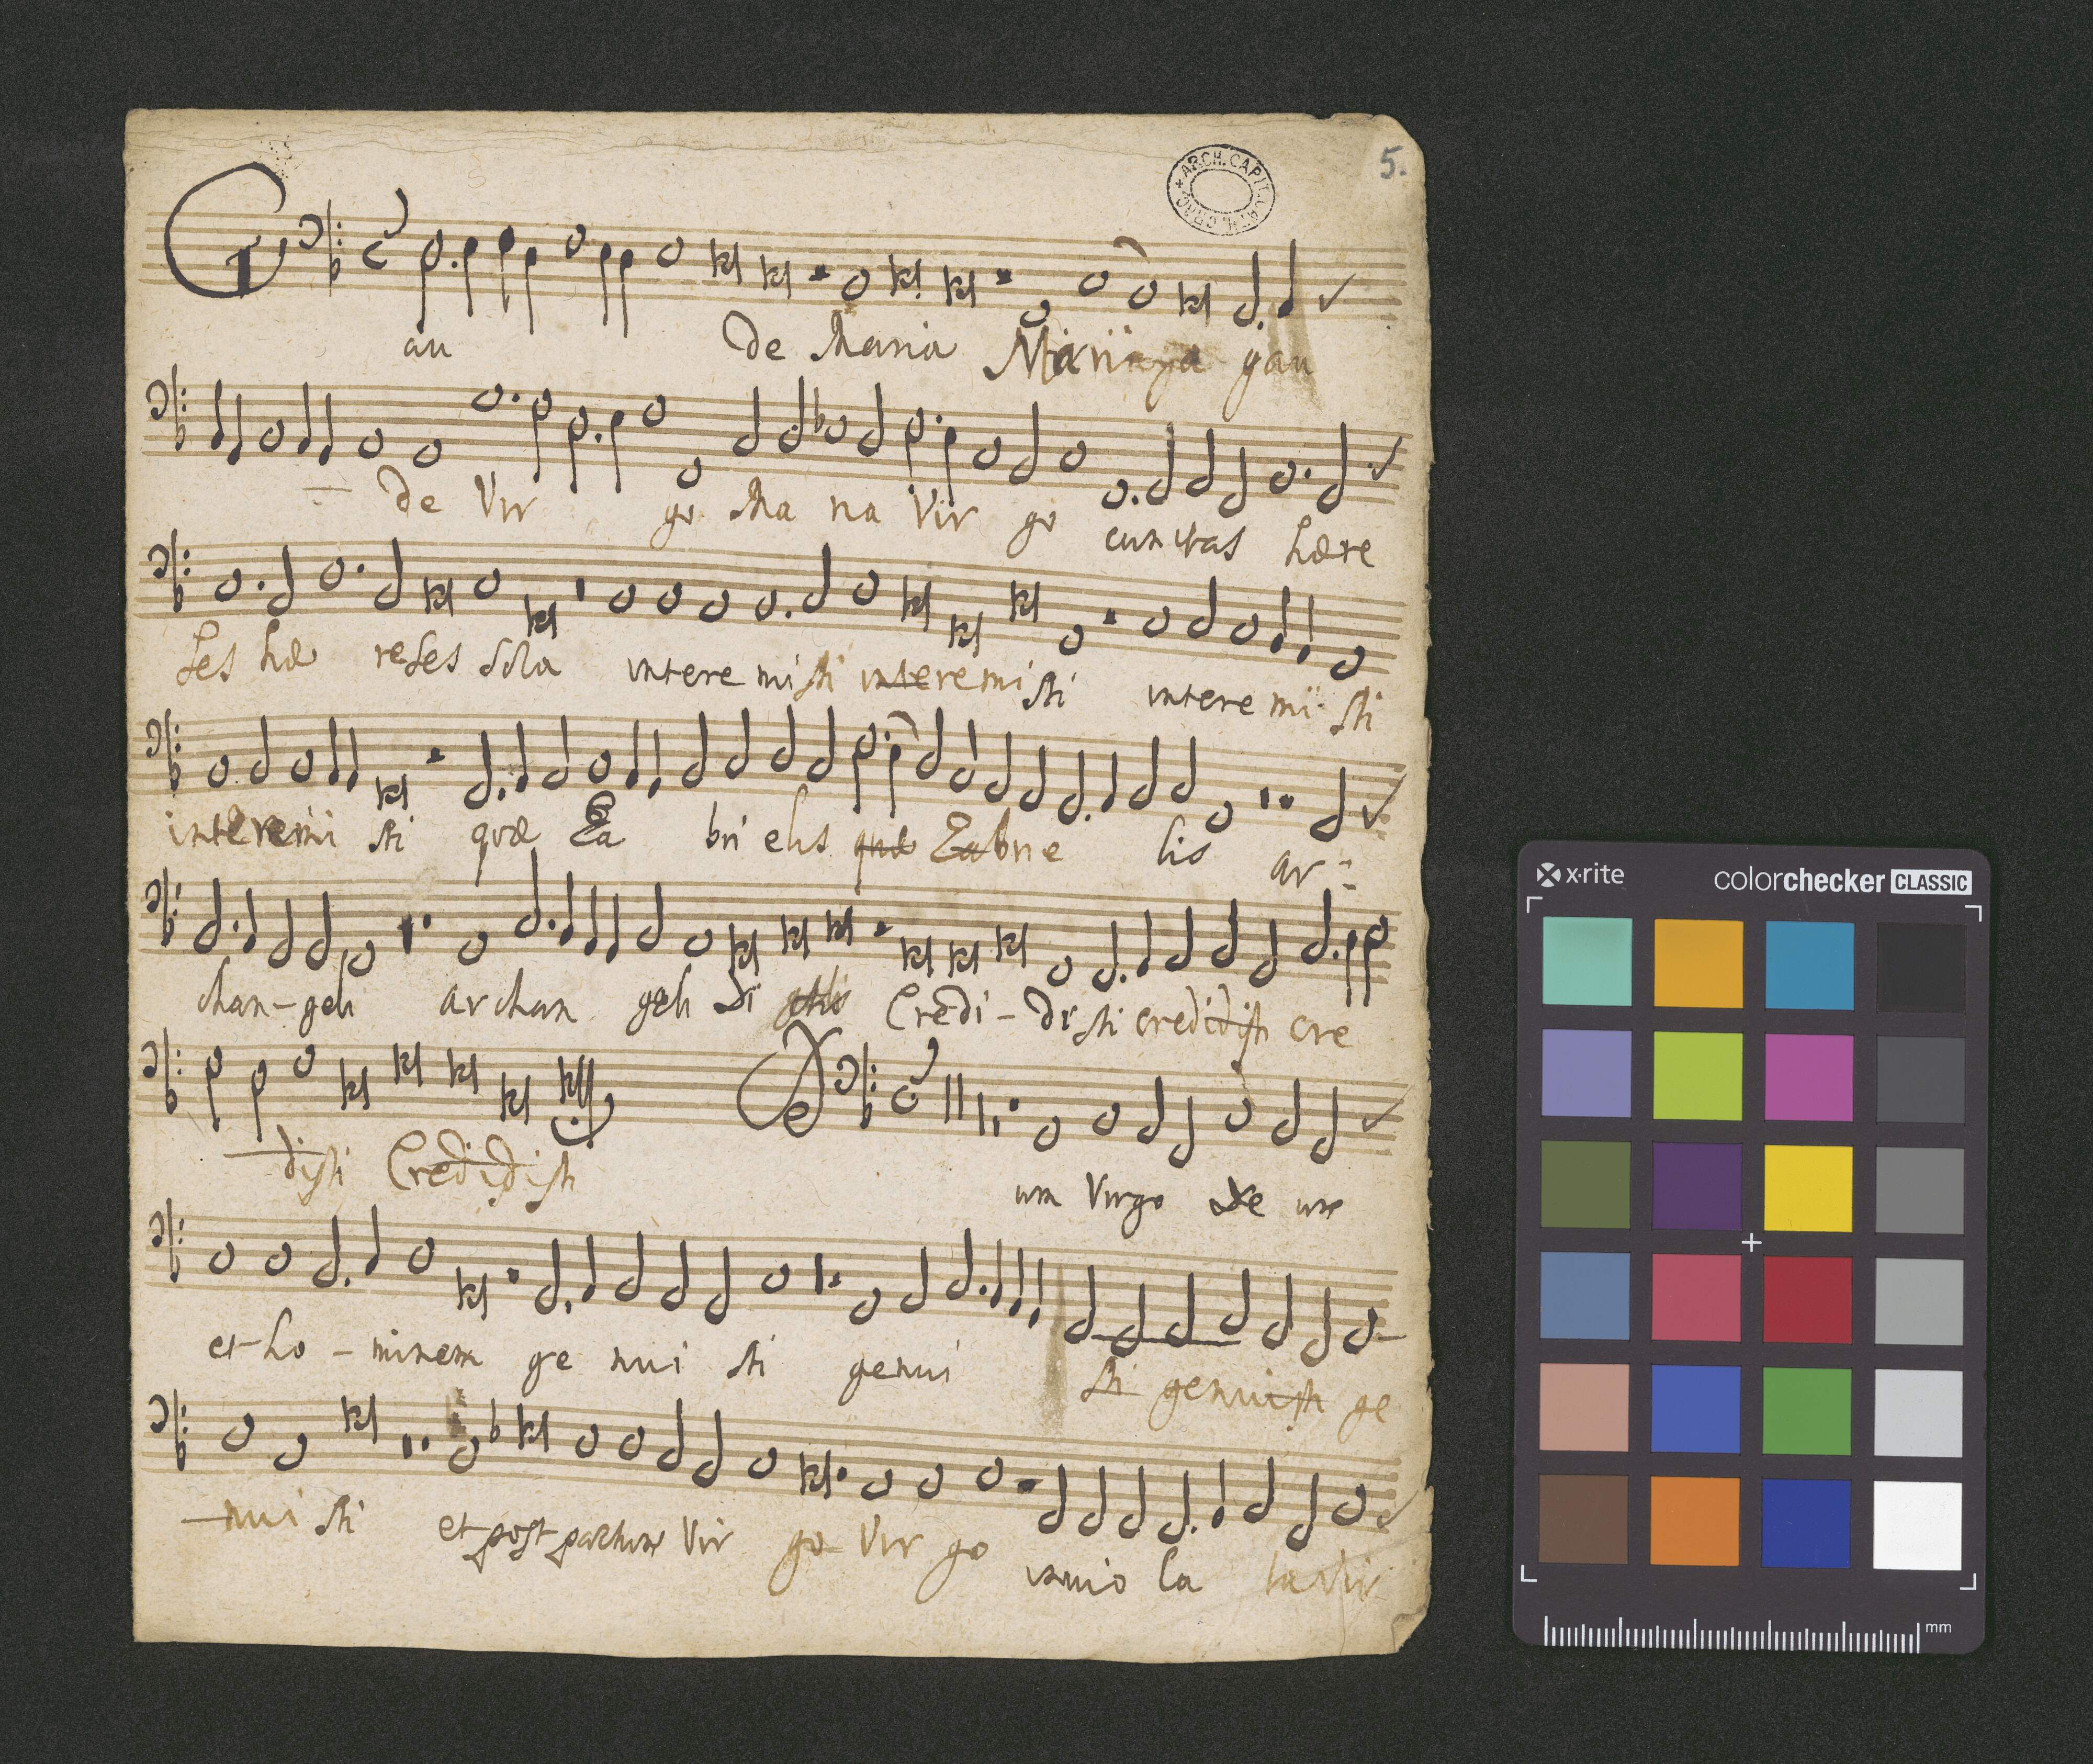 5.
ARCH. CAPIT. CATH. CRAC.
G
au de Maria Maria gau
de Vir go Ma ria Vir go cunctas hære
ses hæ reses sola intere mi sti interemi sti intere mi sti
interemi sti quæ Ga bri elis quæ Gabrie lis ar
chan-geli archan geli di Credi-disti credidisti cre
disti Credidisti
D
um Virgo De um
et ho-minem ge nui sti genui sti genuisti ge
nui sti et post partum Vir go Vir go invio la ta Vir
x·rite colorchecker CLASSIC
mm